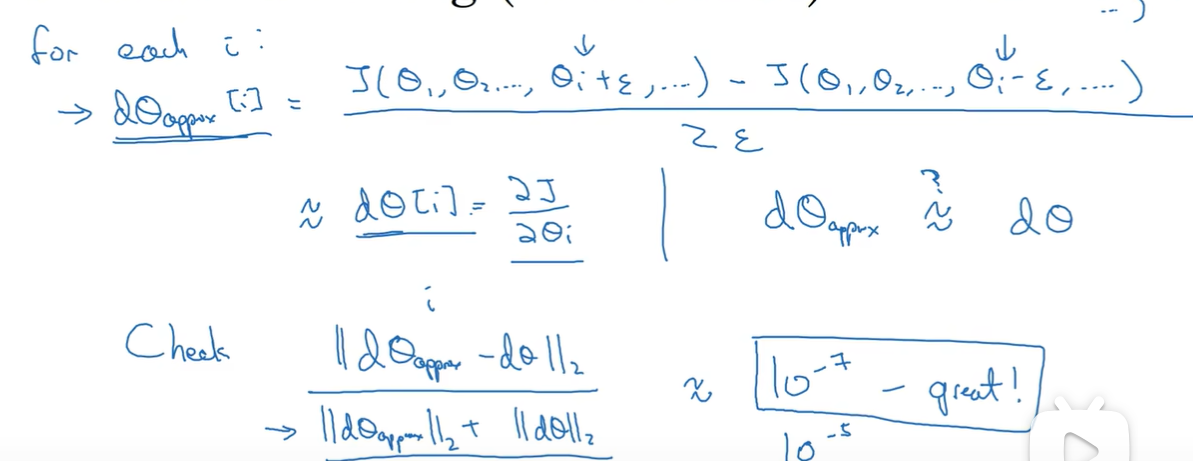 for each i:
→ dθapprox [i] = J(θ1, θ2, ..., θi+ε, ...) - J(θ1, θ2, ..., θi-ε, ...)
2ε
≈ dθ[i] = ∂J/∂θi | dθapprox ≈? dθ
i
Check ||dθapprox - dθ||2
→ ||dθapprox||2 + ||dθ||2 ≈ 10^-7 - great!
10^-5